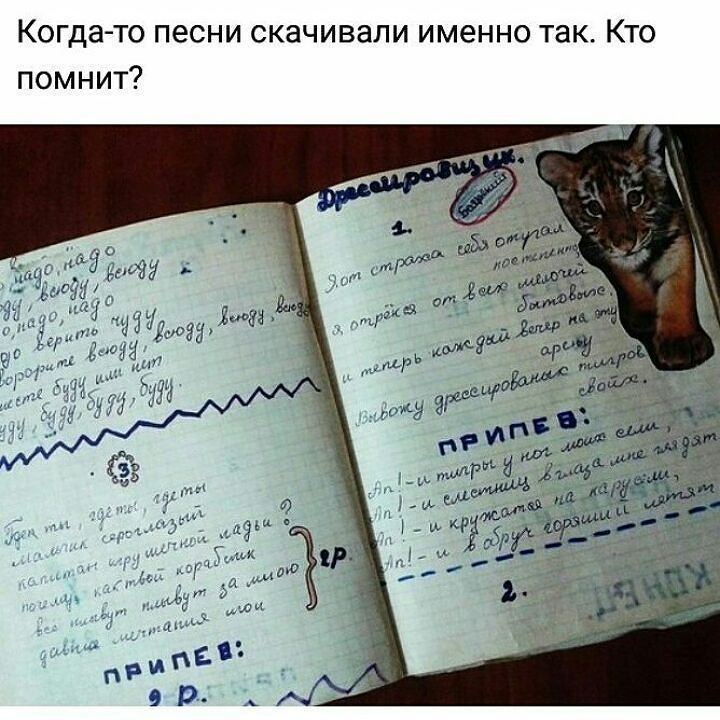 Когда-то песни скачивали именно так. Кто
помнит?
надо, надо
всюду, всюду
надо, надо
верить чуду
всюду, всюду, всюду
буду или нет
буду, буду, буду.
3
Где ты, где ты, где ты
мальчик сероглазый
капитан игрушечной ладьи?
почему, как твой кораблик
все плывут плывут за мною
давние мечтания мои
2р.
ПРИПЕВ:
2 р.
Дрессировщик.
Боярский
1.
Я от страха себя отучал
постепенно
я отрёкся от всех мелочей
бытовых.
и теперь каждый вечер на эту
арену
Вывожу дрессированных тигров
своих.
ПРИПЕВ:
Ап! - и тигры у ног моих сели,
Ап! - и с лестниц в глаза мне глядят
Ап! - и кружатся на карусели,
Ап! - и в обруч горящий летят
2.
КОНЕЦ